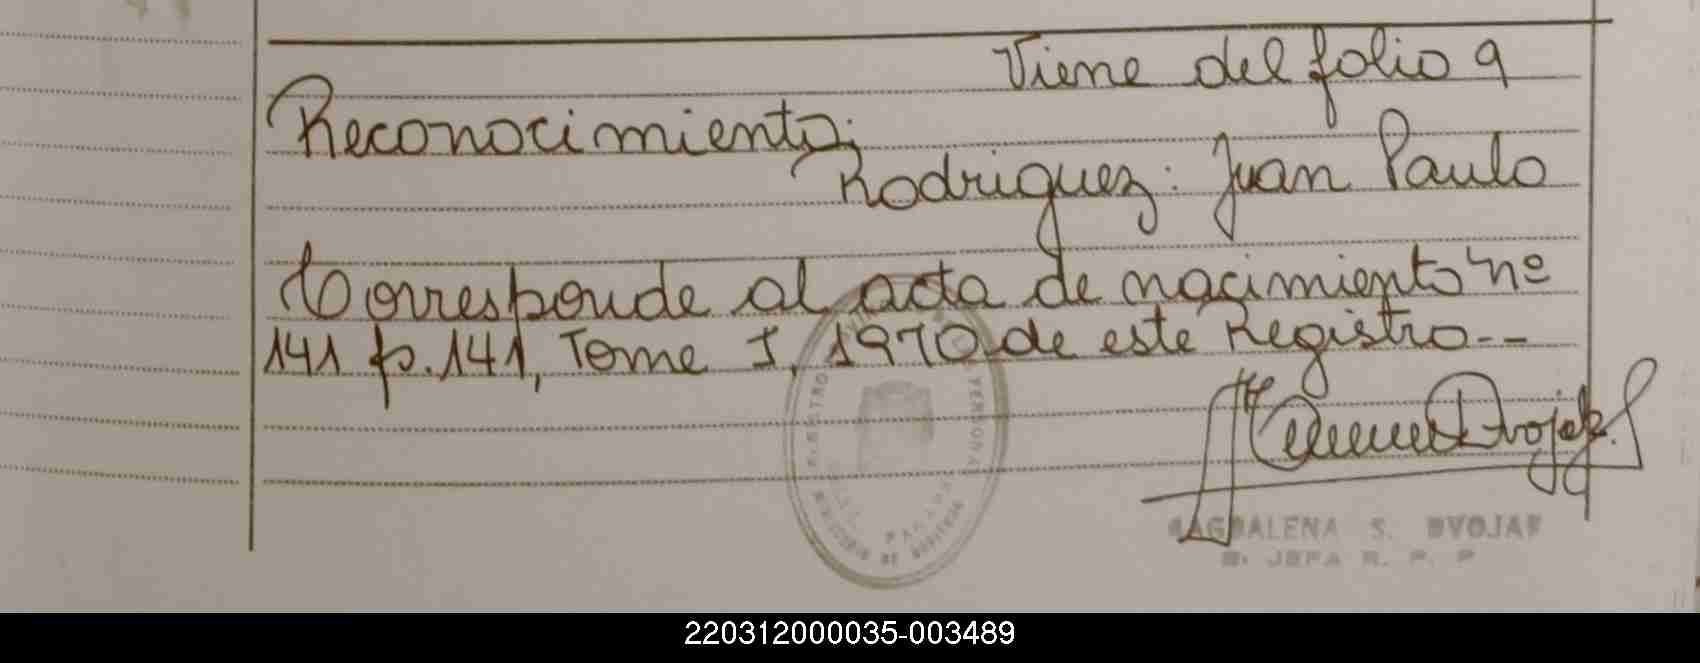 Viene del folio 9
Reconocimiento:
Rodriguez: Juan Paulo
Corresponde al acta de nacimiento nº
141 fo. 141, Tome I, 1970 de este Registro--
MAGDALENA S. DVOJAK
JEFA R. P. P
220312000035-003489